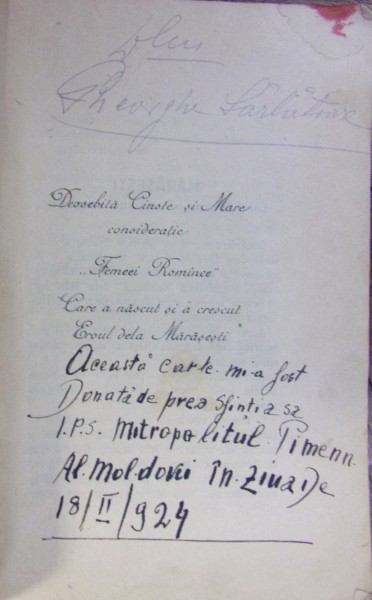 Gheorghe
Deosebită Cinste și Mare
considerație
„Femeei Romînce"
"Care a născut și a crescut
Eroul dela Mărășești"
Această carte mi-a fost
Donată de prea Sfinția sa
I.P.S. Mitropolitul Pimenn.
Al. Moldovei în ziua De
18/II/924